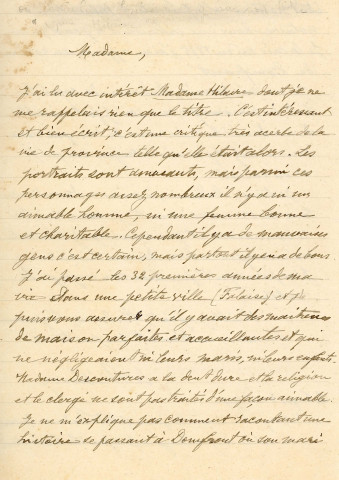 Madame,
J'ai lu avec intérêt Madame Hilaire dont je ne
me rappelais rien que le titre. C'est intéressant
et bien écrit, c'est une critique très acerbe de la
vie de province telle qu'elle était alors. Les
portraits sont amusants, mais parmi ces
personnages assez nombreux il n'y a ni un
aimable homme, ni une femme bonne
et charitable. Cependant il y a de mauvaises
gens c'est certain, mais partout il y en a de bons
J'ai passé les 32 premières années de ma
vie dans une petite ville (Falaise) et je
puis vous assurer qu'il y avait des maîtresses
de maison parfaites et accueillantes et qui
ne négligeaient ni leurs maris, ni leurs enfants.
Madame Descoutures a la dent dure et la religion
et le clergé ne sont pas traités d'une façon aimable.
Je ne m'explique pas comment racontant une
histoire se passant à Domfront où son mari